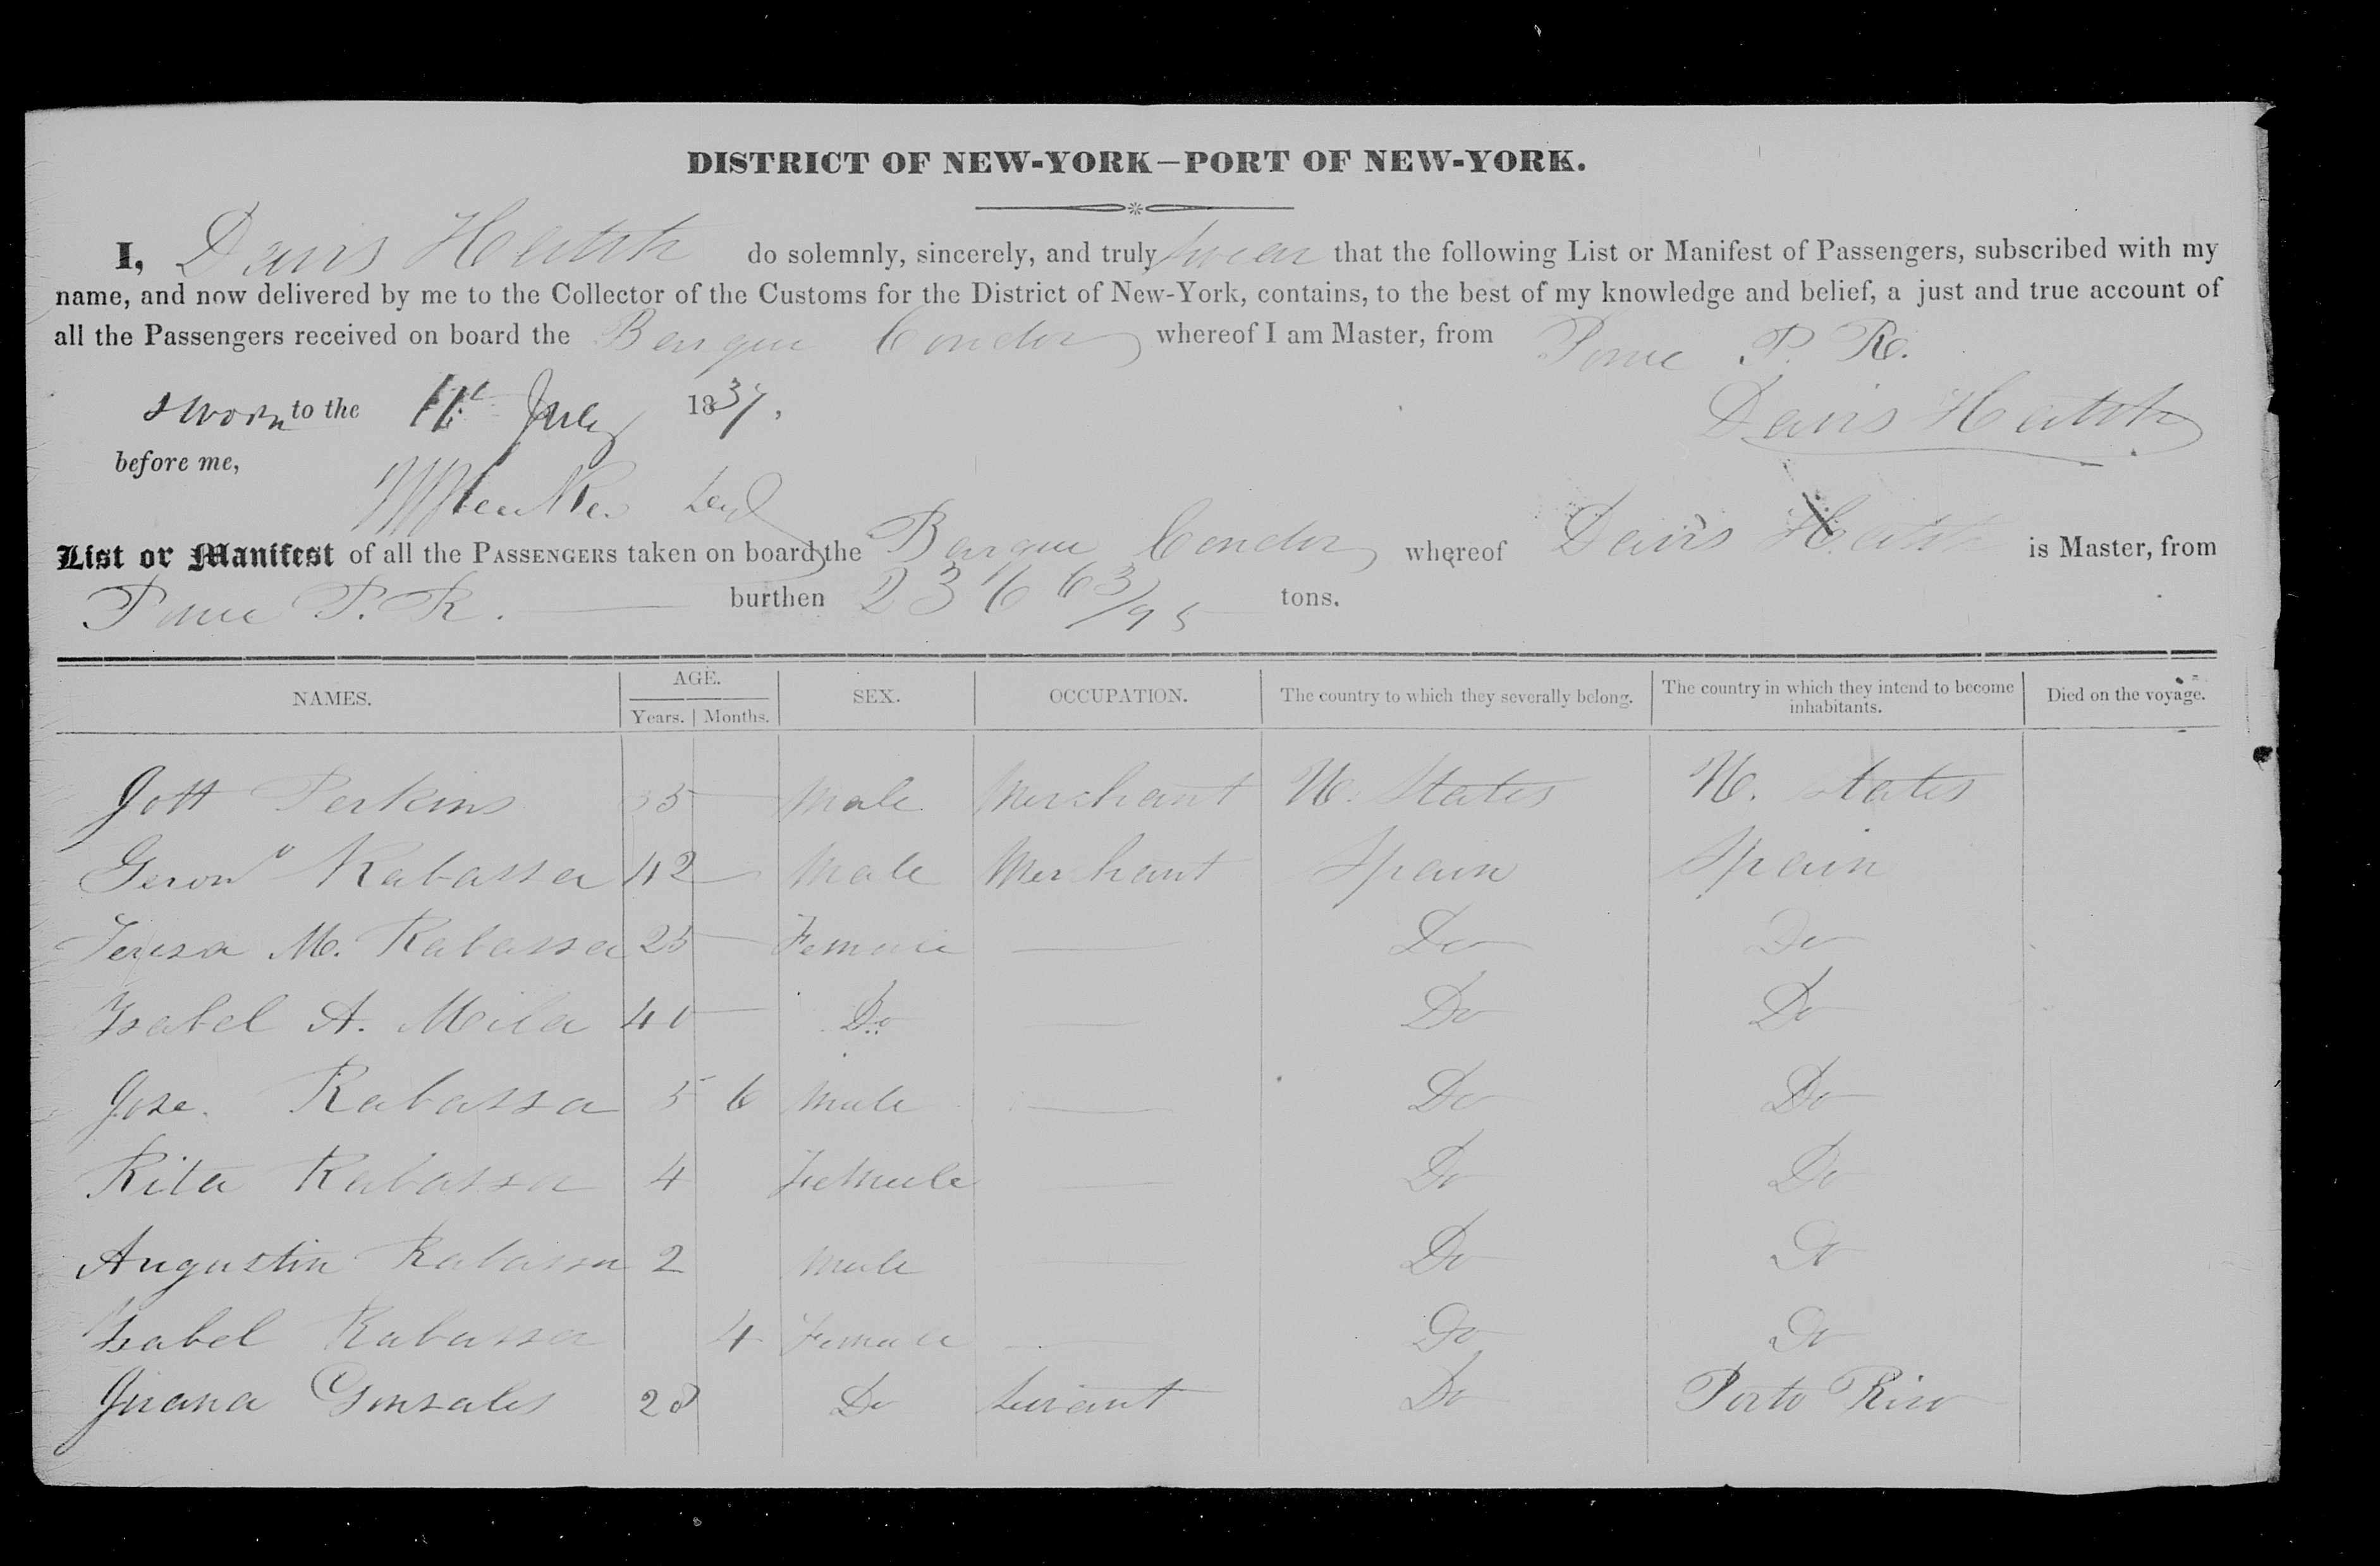 DISTRICT OF NEW-YORK—PORT OF NEW-YORK.
I, Davis Hatch do solemnly, sincerely, and truly swear that the following List or Manifest of Passengers, subscribed with my
name, and now delivered by me to the Collector of the Customs for the District of New-York, contains, to the best of my knowledge and belief, a just and true account of
all the Passengers received on board the Barque Condor whereof I am Master, from Ponce P. R.
Sworn to the 11th July 1837,
Davis Hatch
before me,
List or Manifest of all the PASSENGERS taken on board the Barque Condor whereof Davis Hatch is Master, from
Ponce P. R. burthen 236 63/95 tons.
NAMES. AGE. SEX. OCCUPATION. The country to which they severally belong. The country in which they intend to become inhabitants. Died on the voyage.
Years. Months.
Jott Perkins 35 — Male Merchant U. States U. States
Geronº Rabassa 42 — Male Merchant Spain Spain
Teresa M. Rabassa 25 — Female — Do Do
Isabel A. Mila 40 — Do — Do Do
Jose. Rabassa 5 6 Male — Do Do
Rita Rabassa 4 Female — Do Do
Augustin Rabassa 2 Male — Do Do
Isabel Rabassa 4 Female — Do Do
Juana Gonzales 28 Do Servant Do Porto Rico